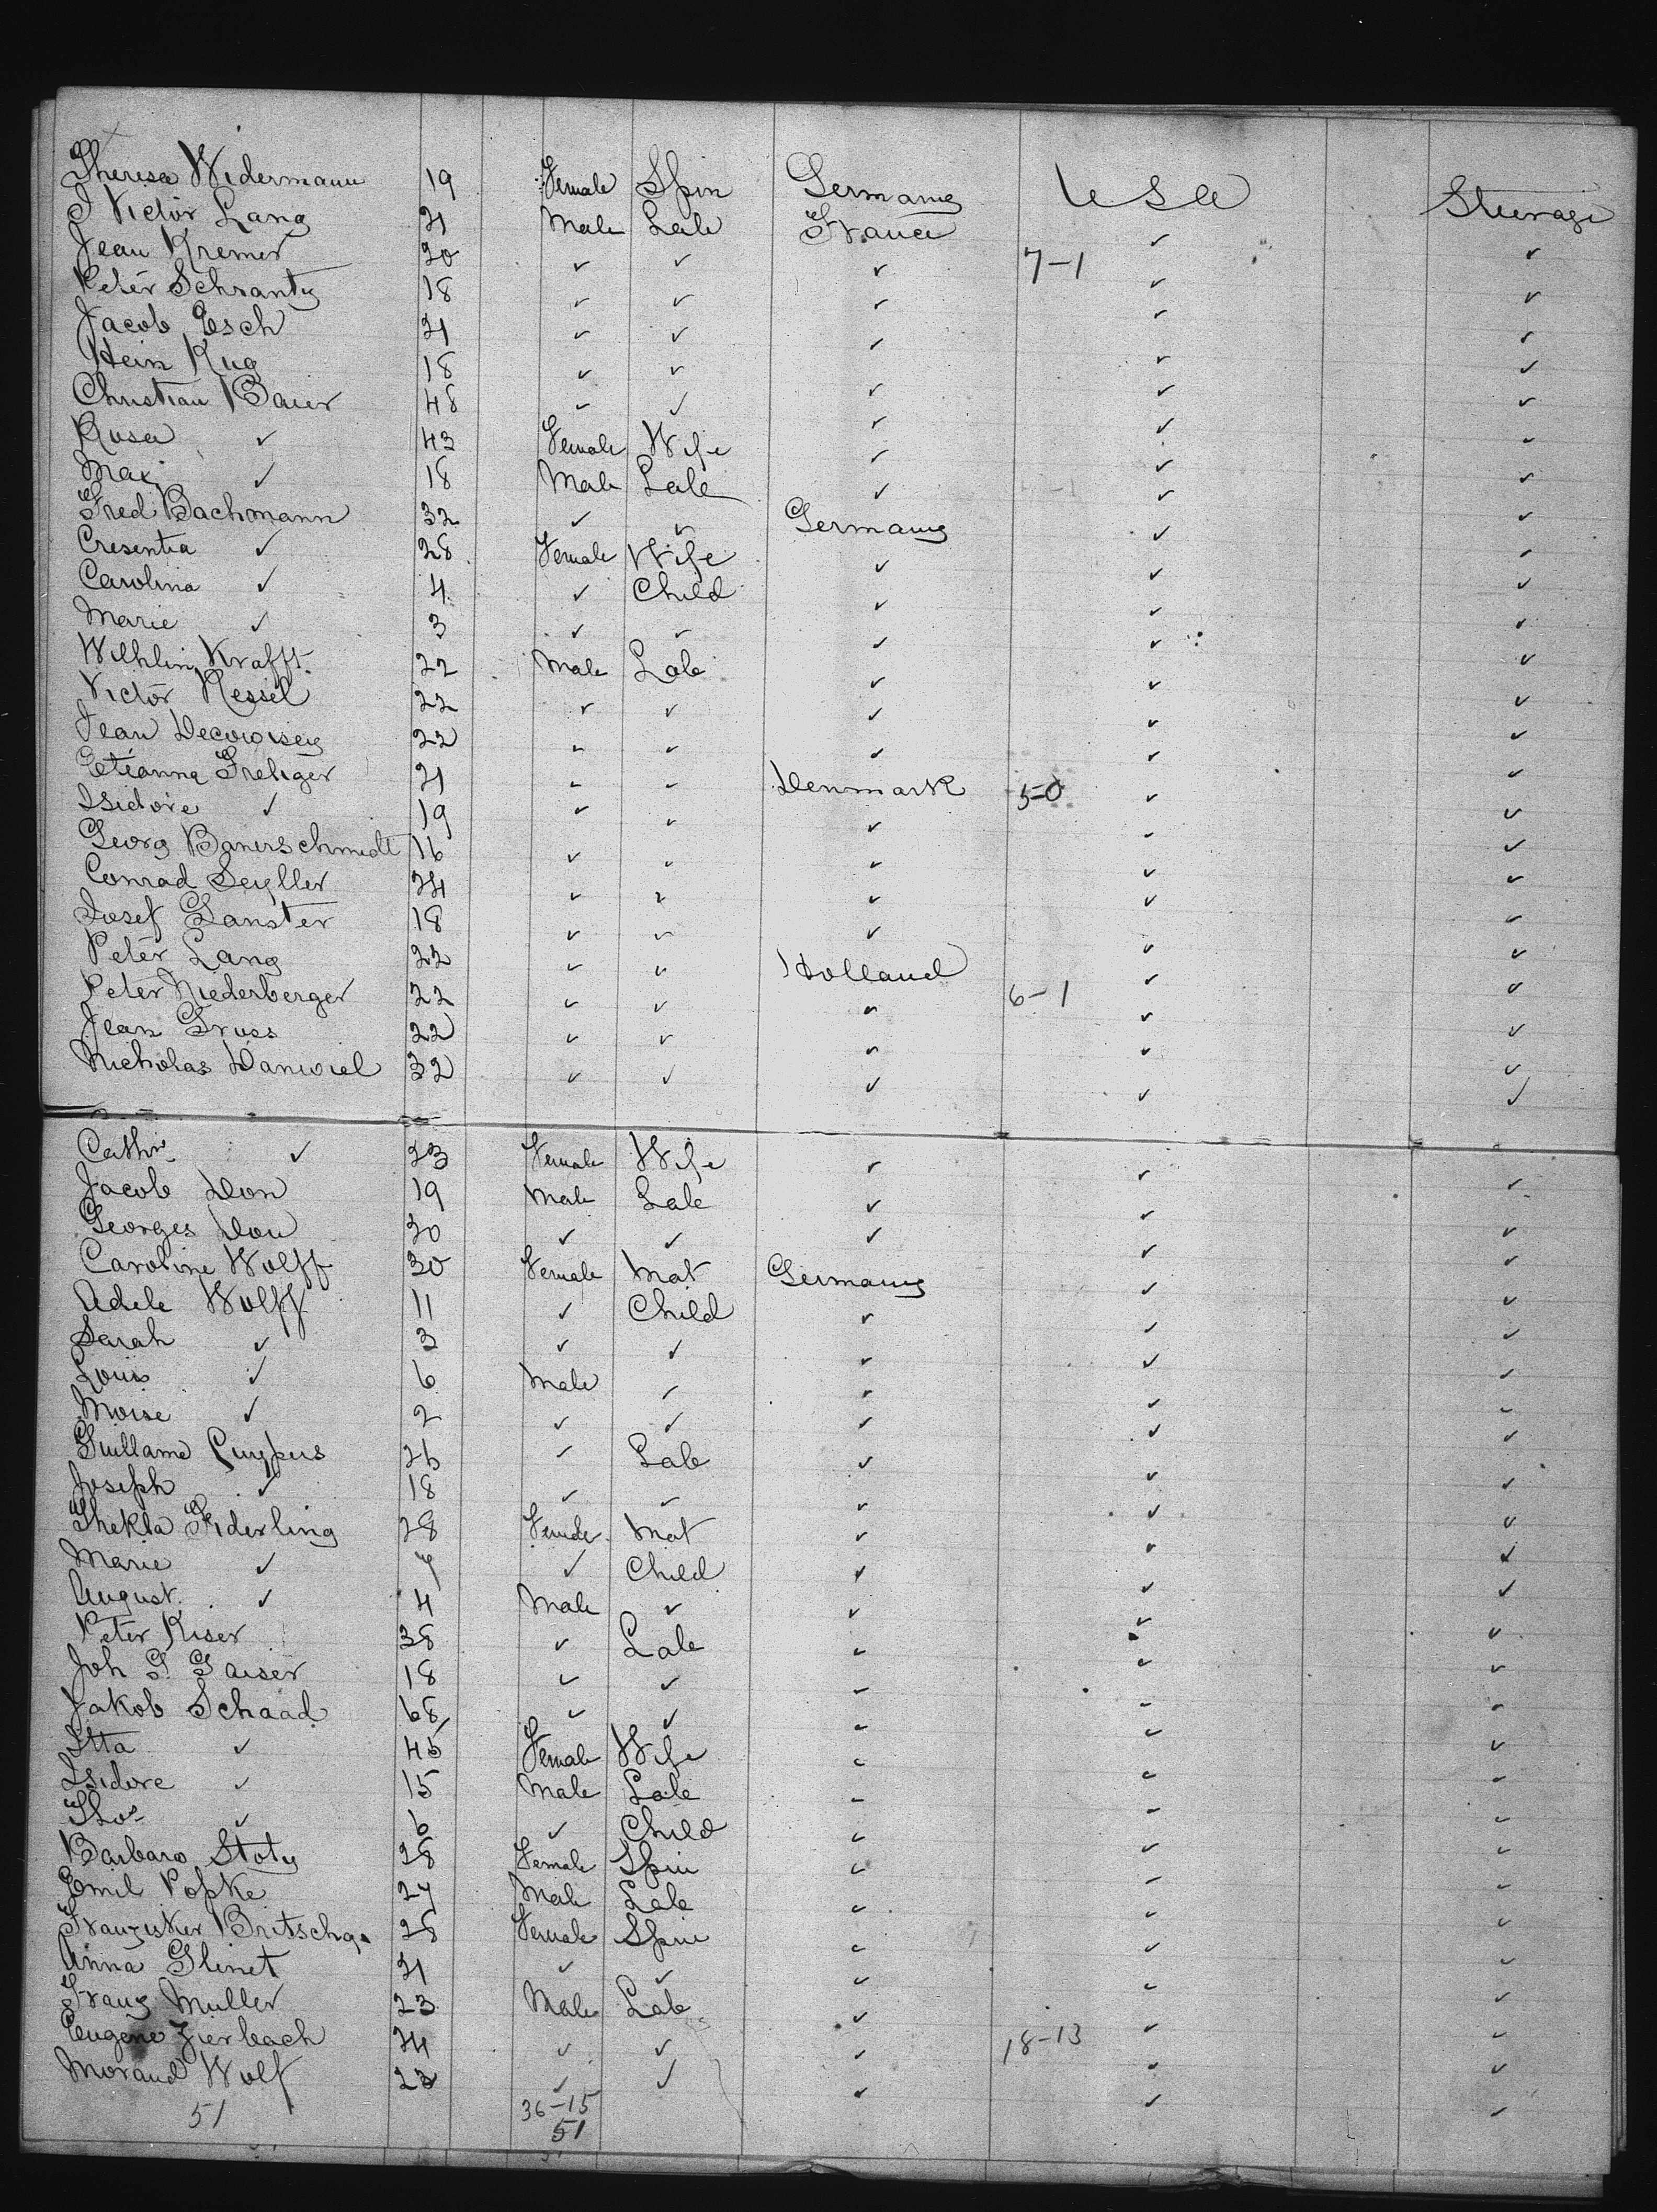 Theresa Widermann 19 Female Spin Germany U S A Steerage
J Victor Lang 21 Male Lab France ✓ ✓
Jean Kremer 20 ✓ ✓ ✓ 7-1 ✓ ✓
Peter Schrantz 18 ✓ ✓ ✓ ✓ ✓
Jacob Esch 21 ✓ ✓ ✓ ✓ ✓
Hein Kug 18 ✓ ✓ ✓ ✓ ✓
Christian Bauer 48 ✓ ✓ ✓ ✓ ✓
Rosa ✓ 43 Female Wife ✓ ✓ ✓
Max ✓ 18 Male Lab ✓ ✓ ✓
Fred Bachmann 32 ✓ ✓ Germany ✓ ✓
Cresentia ✓ 28 Female Wife ✓ ✓ ✓
Carolina ✓ 4 ✓ Child ✓ ✓ ✓
Marie ✓ 3 ✓ ✓ ✓ ✓ ✓
Wilhlim Krafft 22 Male Lab ✓ ✓ ✓
Victor Kessel 22 ✓ ✓ ✓ ✓ ✓
Jean 22 ✓ ✓ ✓ ✓ ✓
Etianna Freliger 21 ✓ ✓ Denmark 5-0 ✓ ✓
Isidore ✓ 19 ✓ ✓ ✓ ✓ ✓
Georg Banerschmidt 16 ✓ ✓ ✓ ✓ ✓
Conrad Seyller 24 ✓ ✓ ✓ ✓ ✓
Josef Ganster 18 ✓ ✓ ✓ ✓ ✓
Peter Lang 22 ✓ ✓ Holland ✓ ✓
Peter Niederberger 22 ✓ ✓ ✓ 6-1 ✓ ✓
Jean Gross 22 ✓ ✓ ✓ ✓ ✓
Nicholas Daniviel 32 ✓ ✓ ✓ ✓ ✓
Cathr ✓ 23 Female Wife ✓ ✓ ✓
Jacob Don 19 Male Lab ✓ ✓ ✓
Georges Don 30 ✓ ✓ ✓ ✓ ✓
Caroline Wolff 30 Female Mat Germany ✓ ✓
Adele Wolff 11 ✓ Child ✓ ✓ ✓
Sarah ✓ 3 ✓ ✓ ✓ ✓ ✓
Louis ✓ 6 Male ✓ ✓ ✓ ✓
Moise ✓ 2 ✓ ✓ ✓ ✓ ✓
Guillame Cuypers 26 ✓ Lab ✓ ✓ ✓
Joseph ✓ 18 ✓ ✓ ✓ ✓ ✓
Thekla Fiderling 28 Female Mat ✓ ✓ ✓
Marie ✓ 7 ✓ Child ✓ ✓ ✓
August ✓ 4 Male ✓ ✓ ✓ ✓
Peter Kiser 38 ✓ Lab ✓ ✓ ✓
Joh G Gaiser 18 ✓ ✓ ✓ ✓ ✓
Jakob Schaad 68 ✓ ✓ ✓ ✓ ✓
Itta ✓ 45 Female Wife ✓ ✓ ✓
Isidore ✓ 15 Male Lab ✓ ✓ ✓
Thos ✓ 6 ✓ Child ✓ ✓ ✓
Barbara Stotz 28 Female Spin ✓ ✓ ✓
Emil Popke 27 Male Lab ✓ ✓ ✓
Franzisker Britschga 28 Female Spin ✓ ✓ ✓
Anna Glinet 21 ✓ ✓ ✓ ✓ ✓
Franz Muller 23 Male Lab ✓ ✓ ✓
Eugene Zierbach 24 ✓ ✓ ✓ 18-13 ✓ ✓
Morand Wolf 22 ✓ ✓ ✓ ✓ ✓
51 36-15
51